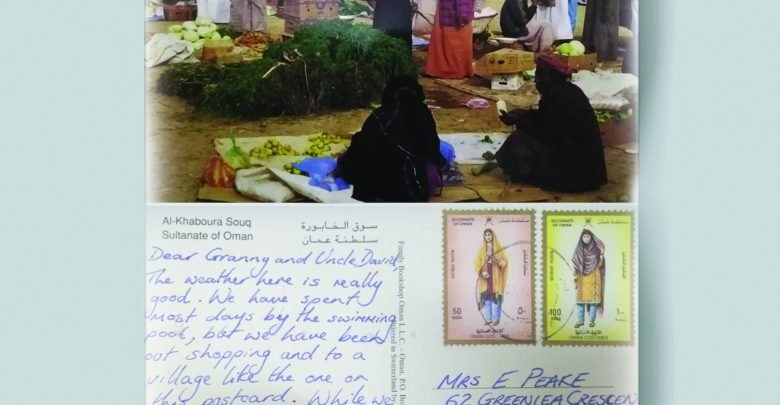 Al-Khaboura Souq
Sultanate of Oman
سوق الخابورة
سلطنة عمان
Dear Granny and Uncle David,
The weather here is really
good. We have spent
most days by the swimming
pool, but we have been
out shopping and to a
village like the one on
this postcard. While we
Family Bookshop Oman L.L.C. – Oman, P.O. Bo
Printed in Switzerland by
SULTANATE OF OMAN
سلطنة عمان
50
٥٠
OMANI COSTUMES
SULTANATE OF OMAN
سلطنة عمان
100
١٠٠
OMANI COSTUMES
MRS E PEAKE
62 GREENLEA CRESCEN